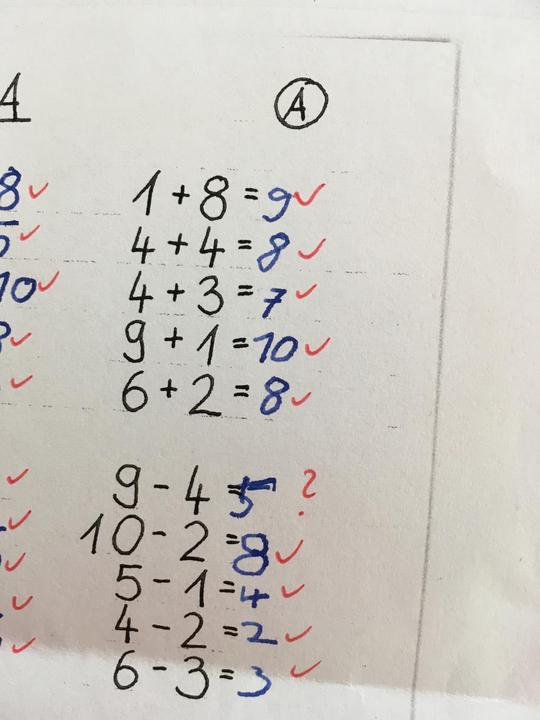 A A
8✓ 1 + 8 = 9✓
✓ 4 + 4 = 8 ✓
10✓ 4 + 3 = 7 ✓
✓ 9 + 1 = 10 ✓
✓ 6 + 2 = 8 ✓
✓ 9 - 4 = 5 ?
✓ 10 - 2 = 8 ✓
✓ 5 - 1 = 4 ✓
✓ 4 - 2 = 2 ✓
✓ 6 - 3 = 3 ✓